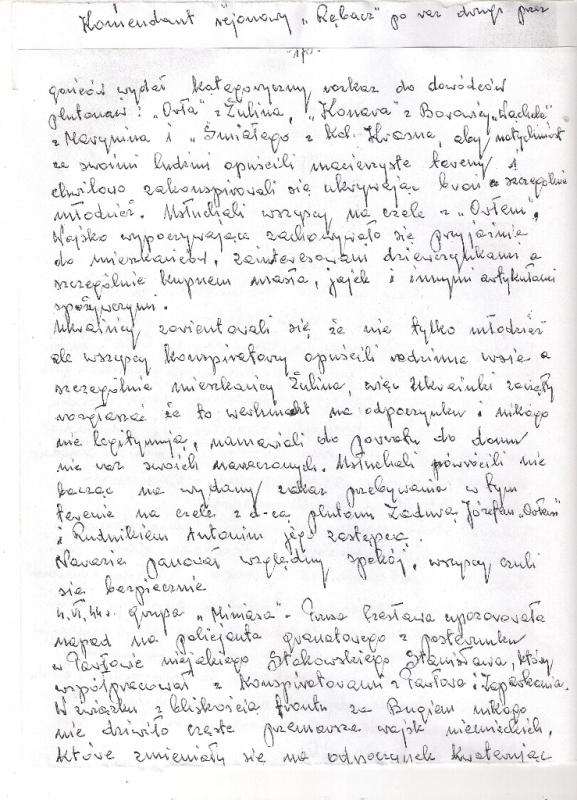 Komendant rejonowy „Rębacz" po raz drugi przez
gońców wydał kategoryczny rozkaz do dowódców
plutonów: „Orła" z Żulina, „Konara" z Borowicy, „Wacheke"
z Marynina i „Śmiałego z Kol. Krasne, aby natychmiast
ze swoimi ludźmi opuścili macierzyste tereny i
chwilowo zakonspirowali się ukrywając broń a szczególnie
młodzież. Usłuchali wszyscy na czele z „Orłem".
Wojsko wypoczywające zachowywało się przyjaźnie
do mieszkańców, zainteresowani dziewczynkami a
szczególnie kupnem masła, jajek i innymi artykułami
spożywczymi.
Ukraińcy zorientowali się że nie tylko młodzież
ale wszyscy konspiratorzy opuścili rodzinne wsie a
szczególnie mieszkańcy Żulina, więc Ukrainki zaczęły
rozgłaszać że to werhmacht na odpoczynku i nikogo
nie legitymują, namawiali do powrotu do domu
nie raz swoich narzeczonych. Usłuchali powrócili nie
bacząc na wydany zakaz przebywania w tym
terenie na czele z d-cą plutonu Zadurą Józefem „Orłem"
i Rudnikiem Antonim jego zastępcą.
Narazie panował względny spokój, wszyscy czuli
się bezpiecznie
4.VI.44r. grupa „Mimasa" - Grusa Czesława upozorowała
napad na policjanta granatowego z posterunku
w Pawłowie niejakiego Stakowskiego Stanisława, który
współpracował z konspiratorami z Pawłowa i Zapaskania.
W związku z bliskością frontu za Bugiem nikogo
nie dziwiło częste przemarsze wojsk niemieckich,
które zmieniały się na odpoczynek kwaterując